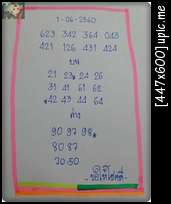 1-06-2560
623 342 364 043
421 126 431 424
บน
21 23 24 26
31 41 61 62
*42 43 44 64
ล่าง
90 97 98*
80 87
70 50
ขอให้โชคดี
[447x600] upic.me